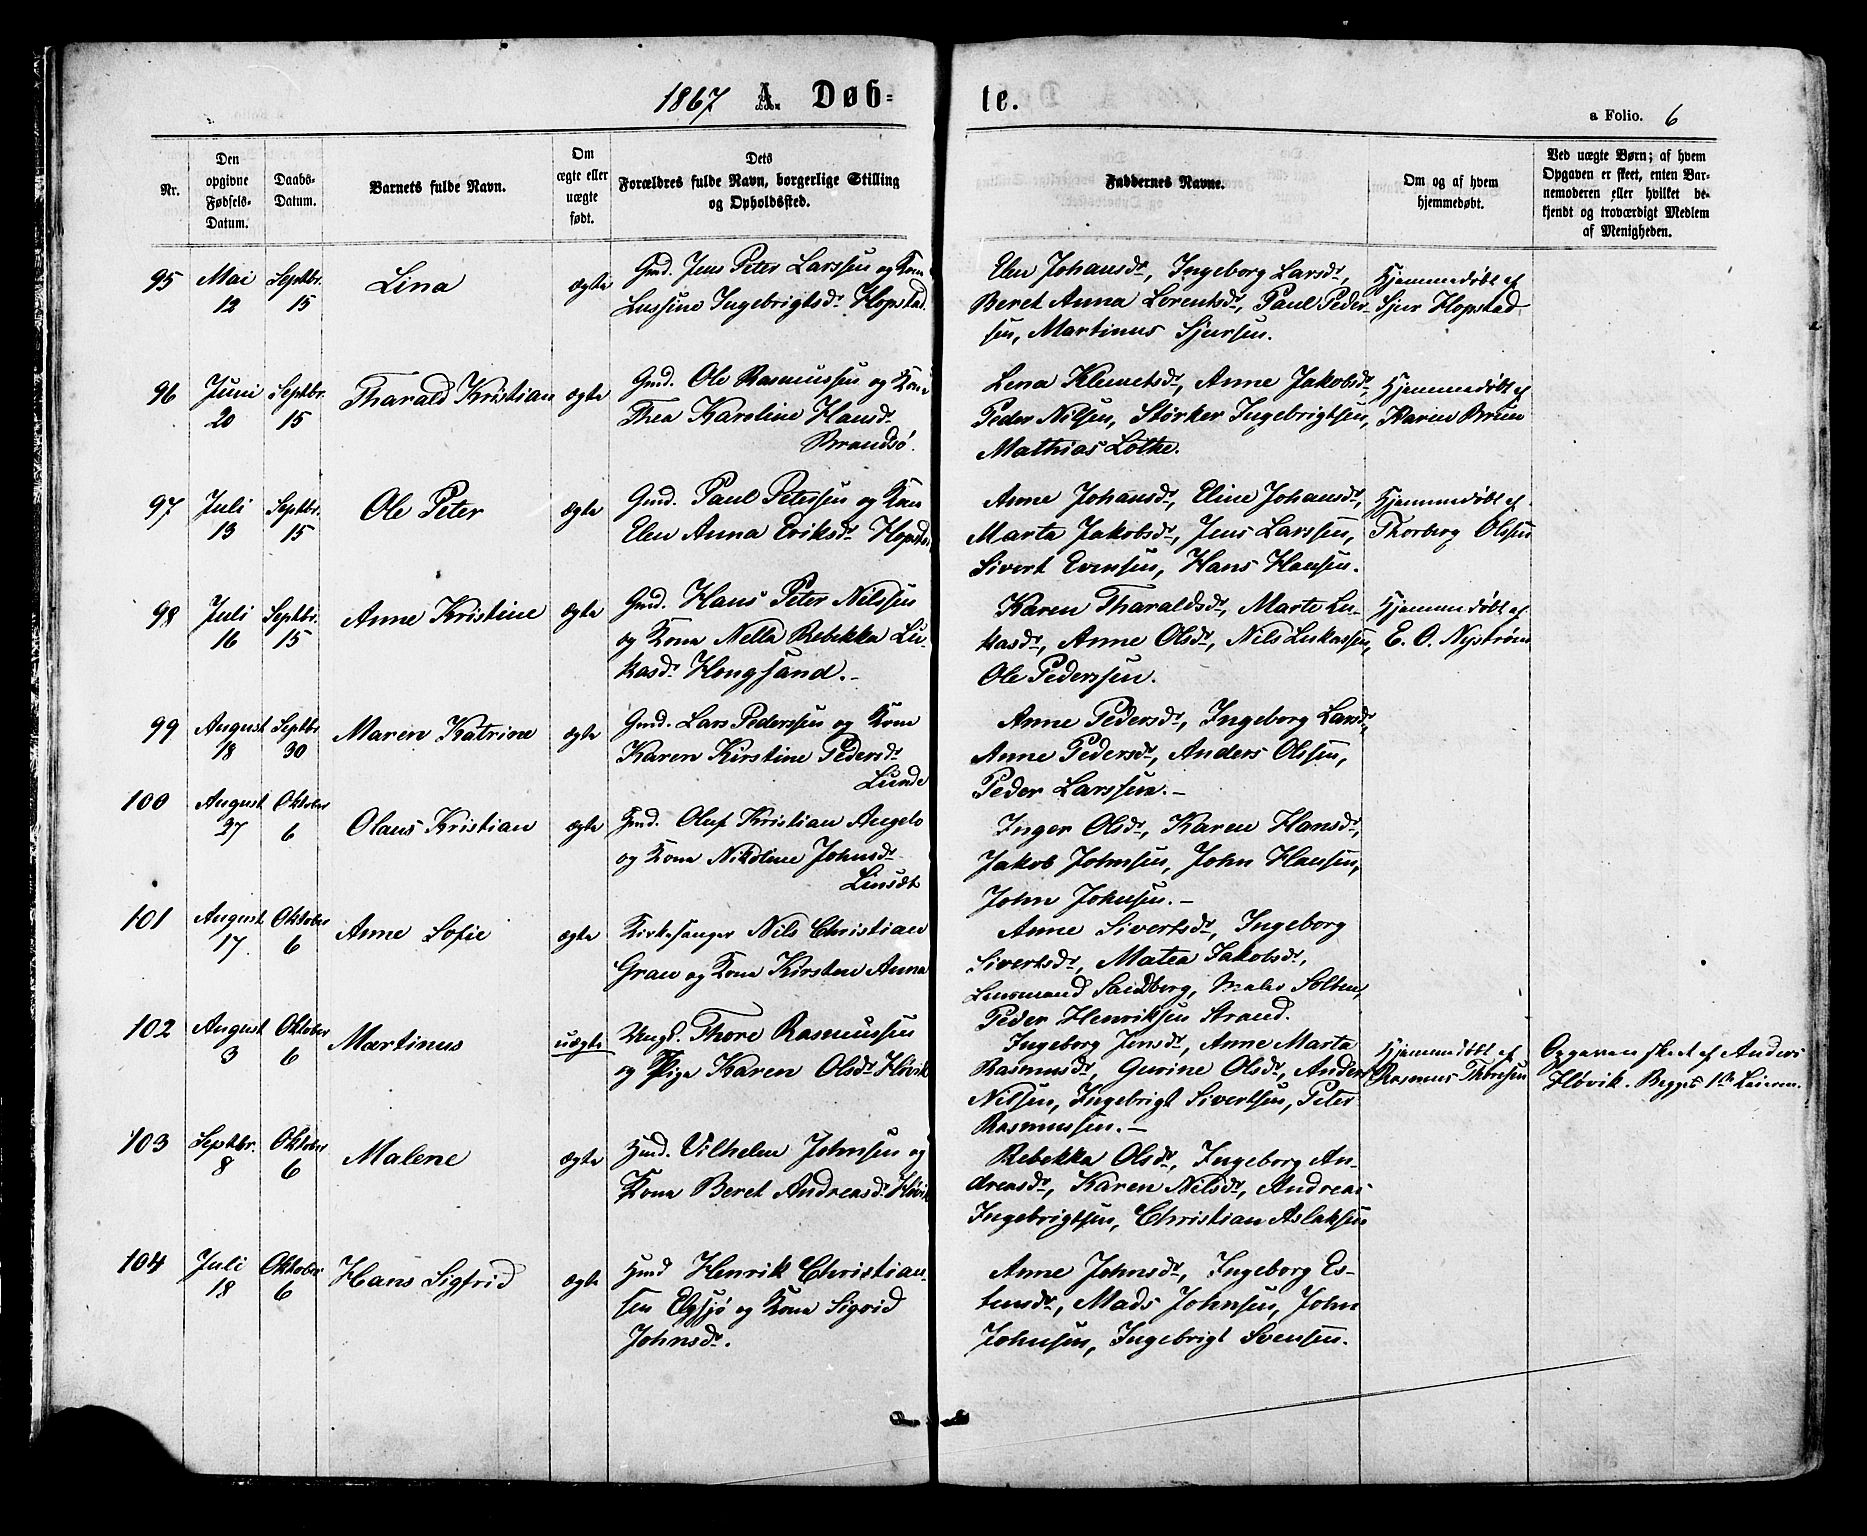 1867 A. Døb-
te.
a Folio. 6
Nr.
Den
opgivne
Fødsels-
Datum.
Daabs-
Datum.
Barnets fulde Navn.
Om
ægte eller
uægte
født.
Dets
Forældres fulde Navn, borgerlige Stilling
og Opholdssted.
Faddernes Navne.
Om og af hvem
hjemmedøbt.
Ved uægte Børn; af hvem
Opgaven er skeet, enten Bar-
nemoderen eller hvilket be-
kjendt og troværdigt Medlem
af Menigheden.
95 Mai 12 Septbr. 15 Lina ægte
Gmd. Jens Peter Larssen og Kone
Lussine Ingebrigtsdr. Hopstad.
Elen Johansdr, Ingeborg Larsdr,
Beret Anna Lorentsdr, Paul Peder-
sen, Martinus Sjursen.
Hjemmedøbt af
Sjur Hopstad
96 Juni 20 Septbr. 15 Tharald Kristian ægte
Gmd. Ole Rasmussen og Kone
Thea Karoline Hansdr.
Brandsø.
Lena Klemetsdr, Anne Jakobsdr,
Peder Nilsen, Størker Ingebrigtsen,
Mathias Lothe.
Hjemmedøbt af
Karen Bruun
97 Juli 13 Septbr. 15 Ole Peter ægte
Gmd. Paul Petersen og Kone
Elen Anna Eriksdr. Hopstad
Anne Johansdr, Eline Johansdr,
Marta Jakobsdr, Jens Larssen,
Sivert Evensen, Hans Hansen.
Hjemmedøbt af
Thorberg Olssen
98 Juli 16 Septbr. 15 Anne Kristine ægte
Gmd. Hans Peter Nilssen
og Kone Nella Rebekka Lu-
kasdr Hongsand.-
Karen Tharaldsdr, Marte Lu-
kasdr, Anne Olsdr, Nils Lukassen,
Ole Pederssen.
Hjemmedøbt af
E. O. Nystrøm
99 August 18 Septbr 30 Maren Katrine ægte
Gmd. Lars Pederssen og Kone
Karen Kirstine Pedersdr.
Lunde
Anne Pedersdr, Ingeborg Larsdr,
Anne Pedersdr, Anders Olssen,
Peder Larssen.-
100 August 27 Oktober 6 Olaus Kristian ægte
Gmd. Oluf Kristian Angels
og Kone Nikoline Johnsdr.
Linsæt
Inger Olsdr, Karen Hansdr,
Jakob Johnsen, John Hansen,
John Johnsen.-
101 August 17 Oktober 6 Anne Sofie ægte
Kirkesanger Nils Christian
Grav og Kone Kirsten Anna
Anne Sivertsdr, Ingeborg
Sivertsdr, Matea Jakobsdr,
Lensmand Sandberg, Maler Solten,
Peder Henriksen Strand.
102 August 3 Oktober 6 Martinus uægte
Ungk. Thore Rasmussen
og Pige Karen Olsdr. Høvik
Ingeborg Jensdr, Anne Marta
Rasmusdr, Gurine Olsdr, Anders
Nilsen, Ingebrigt Sivertsen, Peter
Rasmussen.-
Hjemmedøbt af
Rasmus Thoresen
Opgaven skeet af Anders
Høvik. Begges 1ste Leierm.
103 Septbr. 8 Oktober 6 Malene ægte
Hmd. Vilhelm Johnsen og
Kone Beret Andreasdr. Høvik
Rebekka Olsdr, Ingeborg An-
dreasdr, Karen Nilsdr, Andreas
Ingebrigtsen, Christian Aslaksen
104 Juli 18 Oktober 6 Hans Sigfrid ægte
Hmd Henrik Christian-
sen Elgsjø og Kone Sigrid
Johnsdr.
Anne Johnsdr, Ingeborg Es-
tensdr, Mads Johnsen, John
Johnsen, Ingebrigt Svensen.